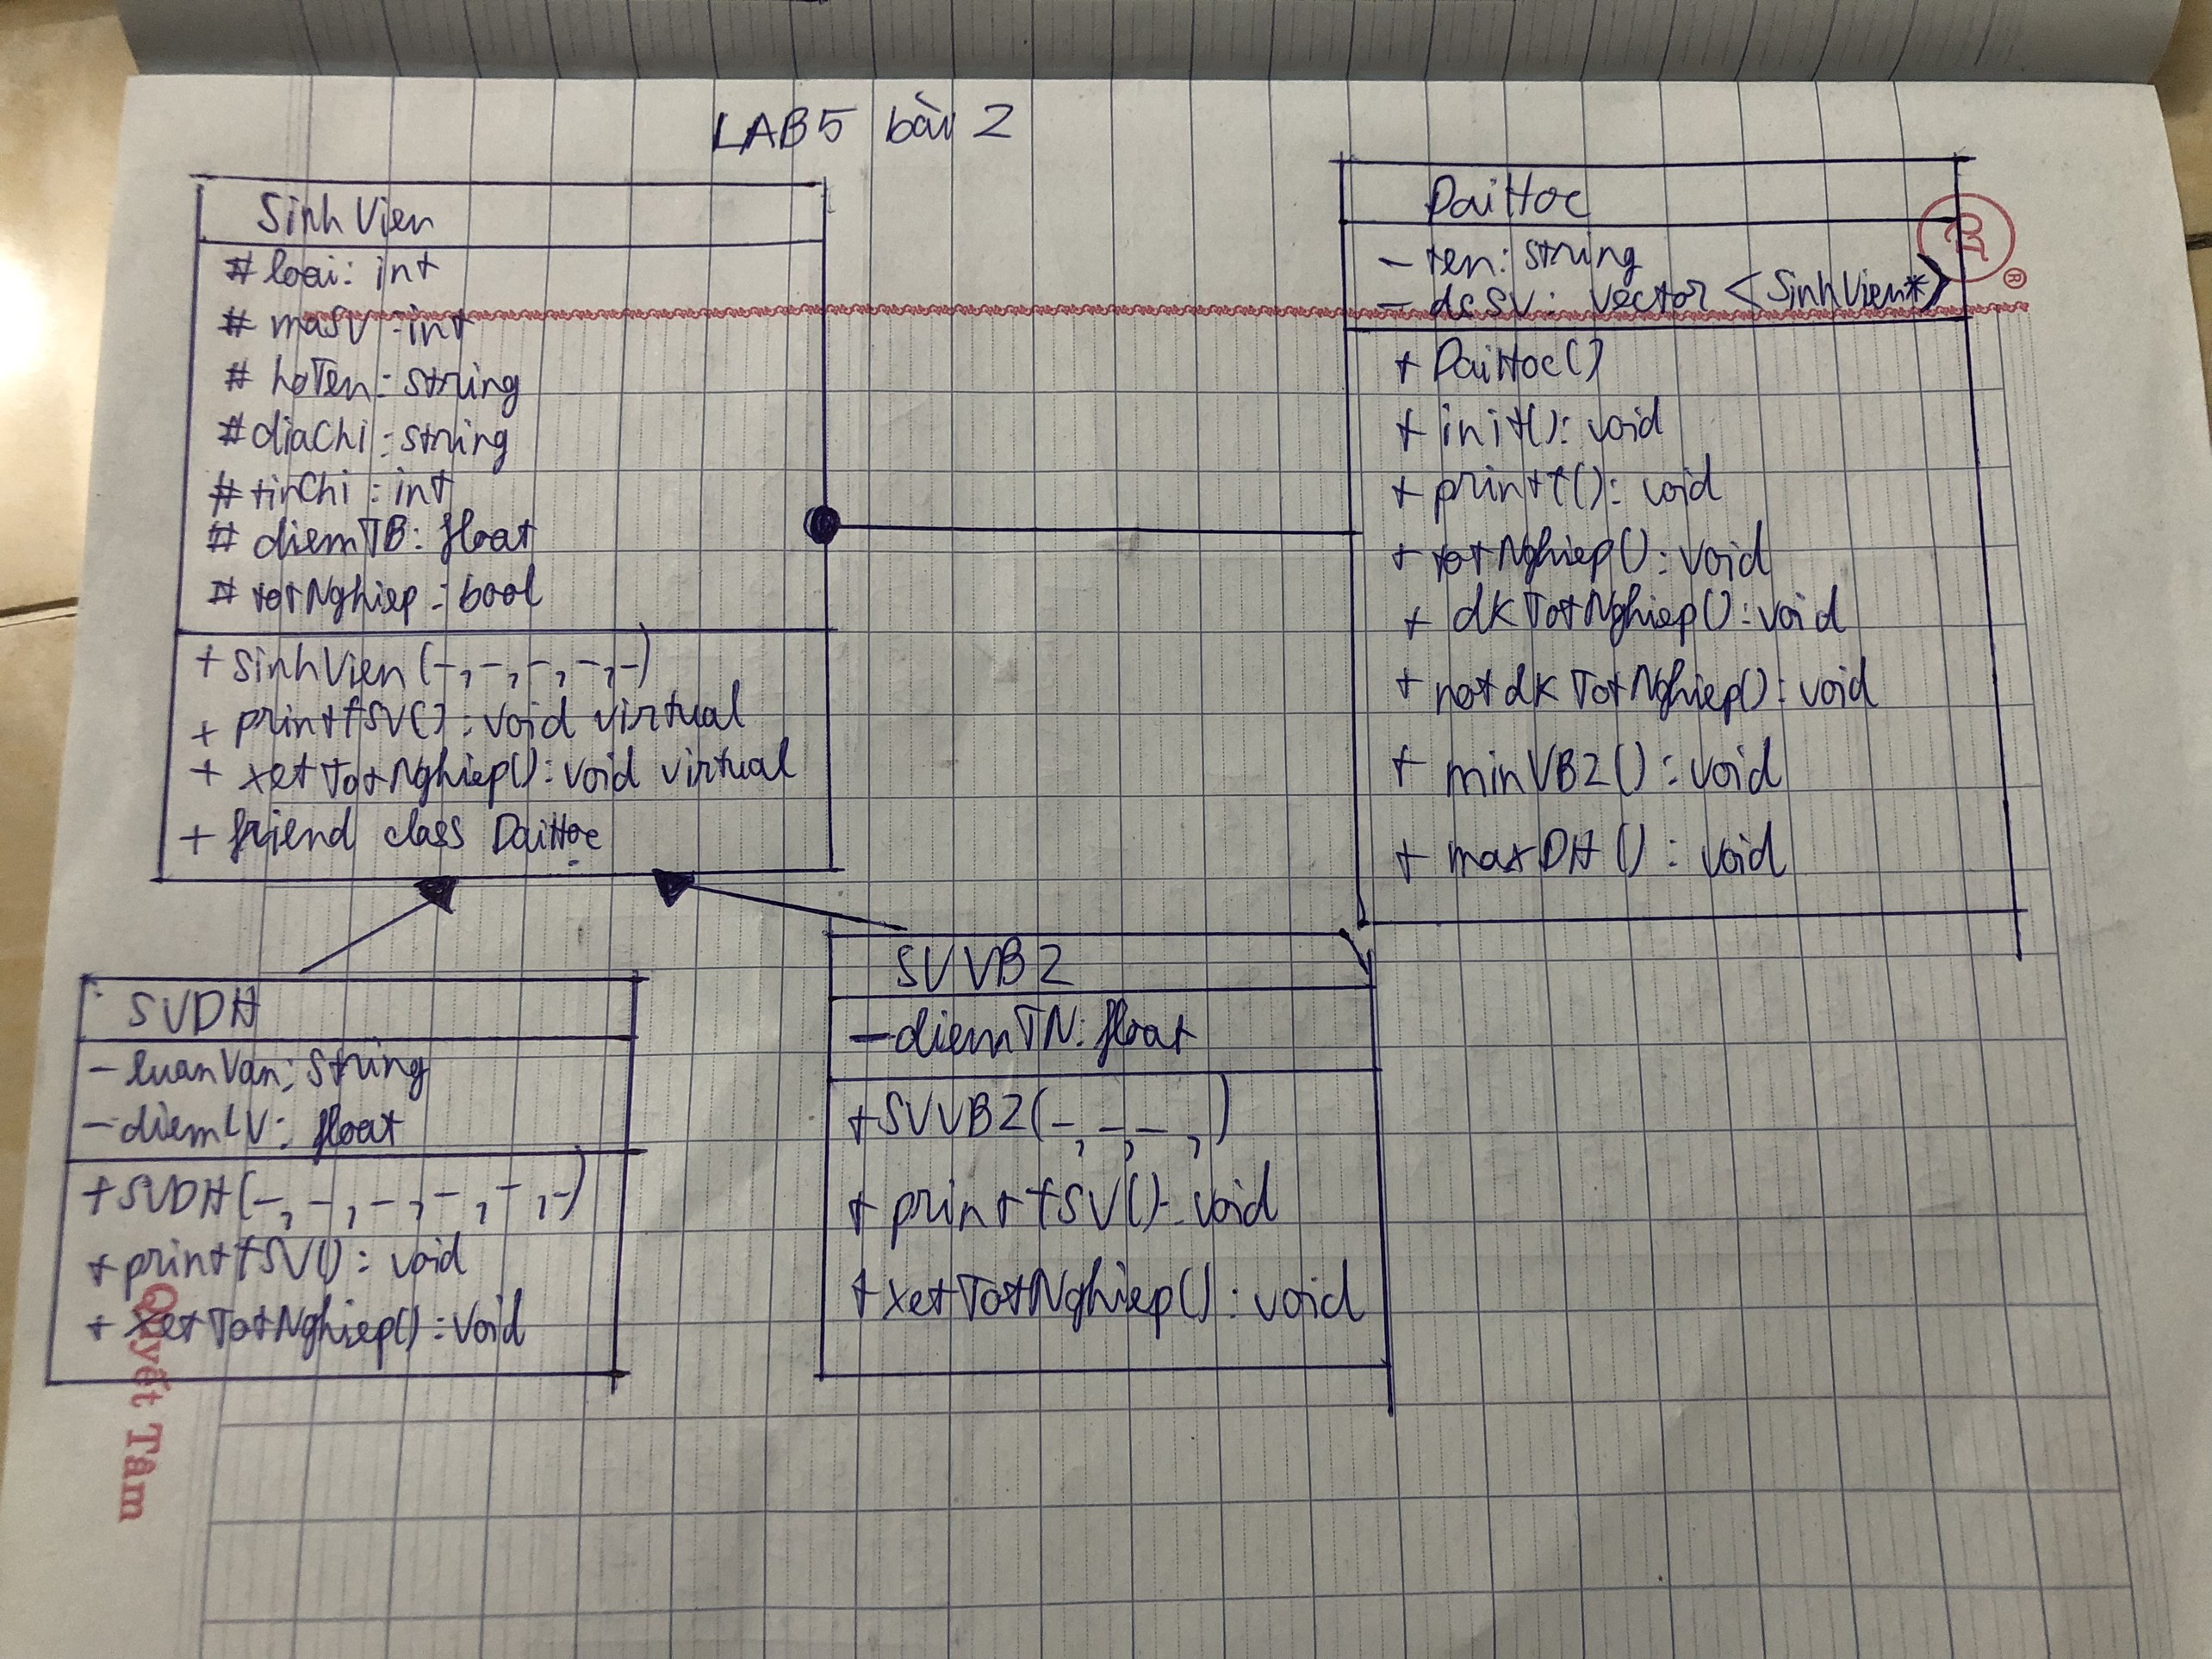 LAB5 bài 2
SinhVien
# loai: int
# maSV: int
# hoTen: string
# diaChi: string
# tinChi: int
# diemTB: float
# totNghiep: bool
+ SinhVien(-,-,-,-,-)
+ printfSV(): void virtual
+ xetTotNghiep(): void virtual
+ friend class DaiHoc
DaiHoc
- ten: string
- dsSV: vector <SinhVien*>
+ DaiHoc()
+ init(): void
+ printf(): void
+ totNghiep(): void
+ dkTotNghiep(): void
+ notdkTotNghiep(): void
+ minVB2(): void
+ maxDH(): void
SVDH
- luanVan: string
- diemLV: float
+ SVDH(-,-,-,-,-,-)
+ printfSV(): void
+ xetTotNghiep(): void
SVVB2
- diemTN: float
+ SVVB2(-,-,-,)
+ printfSV(): void
+ xetTotNghiep(): void
Quyết Tâm
®